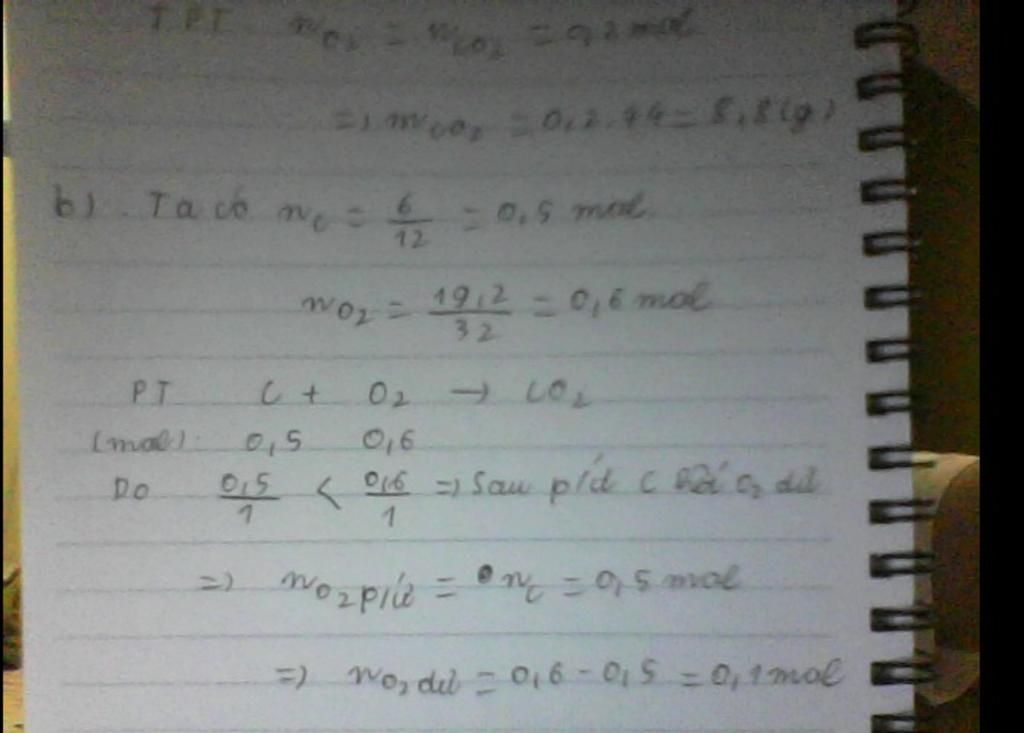 TPT nO2 = nCO2 = 0,2 mol
=> mCO2 = 0,2.44 = 8,8(g)
b). Ta có nC = 6/12 = 0,5 mol
nO2 = 19,2/32 = 0,6 mol
PT C + O2 → CO2
(mol): 0,5 0,6
Do 0,5/1 < 0,6/1 => Sau p/ứ C hết O2 dư
=> nO2 p/ứ = nC = 0,5 mol
=> nO2 dư = 0,6 - 0,5 = 0,1 mol